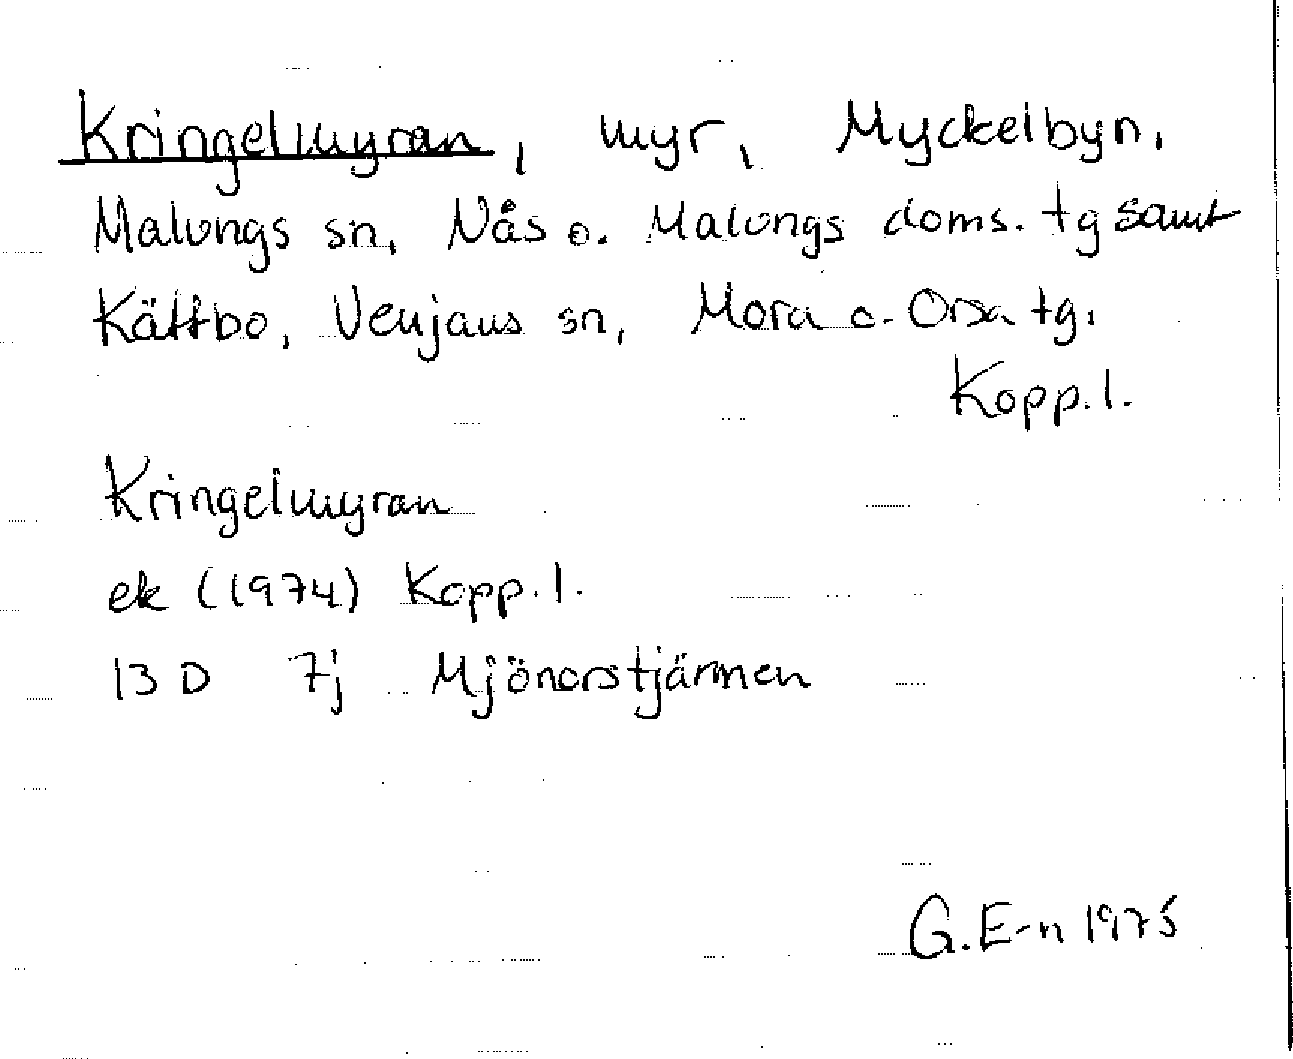 Kringelmyran, myr, Myckelbyn,
Malungs sn, Nås o. Malungs doms. tg samt
Kättbo, Venjans sn, Mora o. Orsa tg,
Kopp.l.
Kringelmyran
ek (1974) Kopp.l.
13 D 7j Mjönorstjärnen
G.E-n 1975